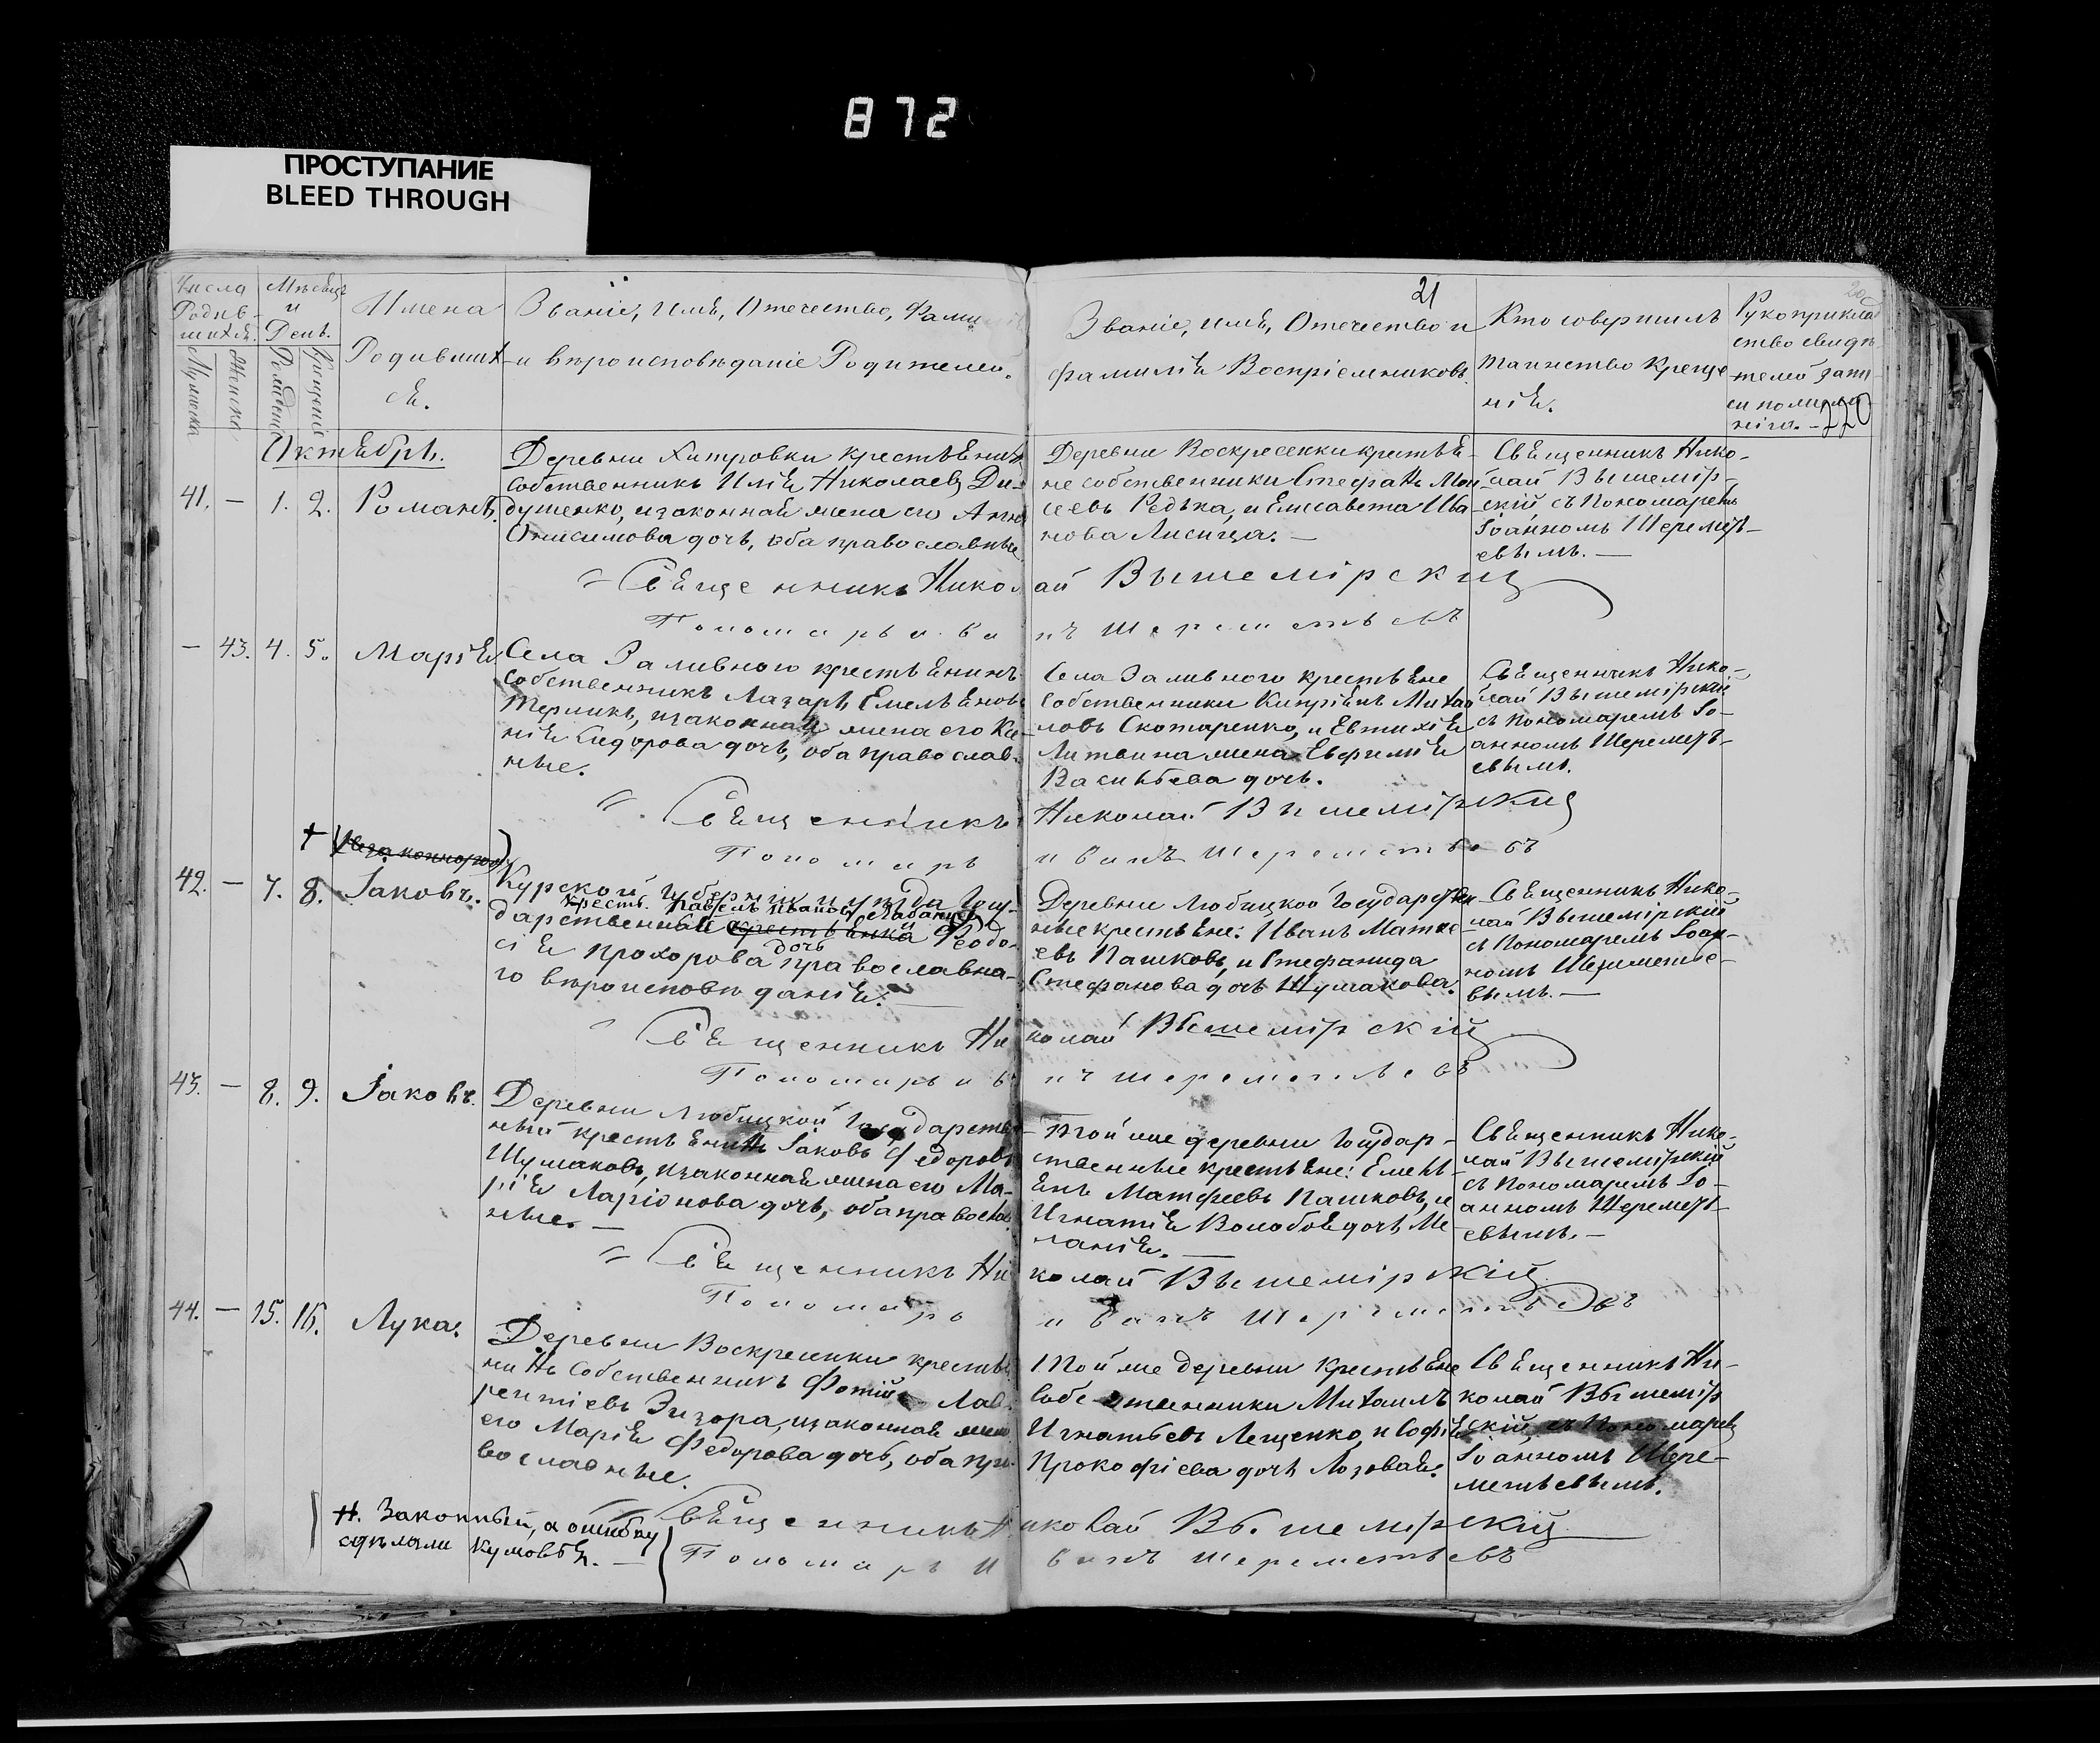 872
ПРОСТУПАНИЕ
BLEED THROUGH
Числа Родив-шихся.
Мужеска
Женска
Мѣсяцъ и День.
Рожденія
Крещенія
Имена Родившихся.
Званіе, Имя, Отечество, Фами
и вѣроисповѣданіе Родителей.
21
Званіе, имя, Отечество и
фамилія Воспріемниковъ.
Кто совершилъ
таинство Креще
нія.
20
Рукоприклад
ство свидѣ
телей запи
си по
220
Октябрь.
41. — 1. 2. Романъ.
Деревни Хитровки крестьянинъ
собственникъ Илія Николаевъ Ди-
душенко, и законная жена его Анна
Онисимова дочь, оба православные
Деревни Воскресенки крестья-
не собственники Стефанъ Мои
сеевъ Редька, и Елисавета Ива
нова Лисица. —
Священникъ Нико-
лай Вышемір-
скій съ Пономаремъ
Іоанномъ Шеремет-
евымъ. —
Священникъ Николай Вышемірскій
Пономарь Иванъ Шереметьевъ
— 43. 4. 5. Марія.
Села Заливного крестьянинъ
собственникъ Лазарь Емельяновъ
Терликъ, и законная жена его Ксе-
нія Сидорова дочь, оба православ-
ные.
Села Заливного крестьяне
собственники Кипріянъ Михаи
ловъ Скотаренко, и Евтихія
Литвина жена Евфимія
Васильева дочь.
Священникъ Нико-
лай Вышемірскій
съ Пономаремъ Іо-
анномъ Шеремет-
евымъ.
Священникъ Николай Вышемірскій
Пономарь Иванъ Шереметьевъ
+ (незаконнорож)
42. — 7. 8. Іаковъ.
Курской Губерніи и уѣзда Госу-
крест. Павелъ Ивановъ
дарственный крестьянка Феодо-
дочь
сія Прохорова православна-
го вѣроисповѣданія. —
Деревни Любицкой Государствен
ные крестьяне: Иванъ Матве
евъ Пашковъ, и Стефанида
Стефанова дочь Шумакова.
Священникъ Нико-
лай Вышемірскій
съ Пономаремъ Іоан-
номъ Шереметье-
вымъ. —
Священникъ Николай Вышемірскій
Пономарь Иванъ Шереметьевъ
43. — 8. 9. Іаковъ.
Деревни Любицкой Государствен
ный крестьянинъ Іаковъ Федоровъ
Шумаковъ, и законная жена его Ма-
рія Ларіонова дочь, оба православ
ные. —
Той же деревни Государ-
ственные крестьяне: Емель
янъ Матфеевъ Пашковъ, и
Игнатія Волобоя дочь Ме
ланія. —
Священникъ Нико-
лай Вышемірскій
съ Пономаремъ Іо-
анномъ Шеремет-
евымъ. —
Священникъ Николай Вышемірскій
Пономарь Иванъ Шереметьевъ
44. — 15. 16. Лука.
Деревни Воскресенки крестья
нинъ собственникъ Фотій Лав
рентіевъ Зигора, и законная жена
его Марія Федорова дочь, оба пра
вославные.
Той же деревни крестьяне
собственники Михаилъ
Игнатьевъ Лещенко, и Софія
Прокофіева дочь Лозовая.
Священникъ Ни-
колай Вышемір
скій, съ Пономаремъ
Іоанномъ Шере-
метьевымъ.
Священникъ Николай Вышемірскій
Пономарь Иванъ Шереметьевъ
Законный, а ошибку
сдѣлали кумовья. —